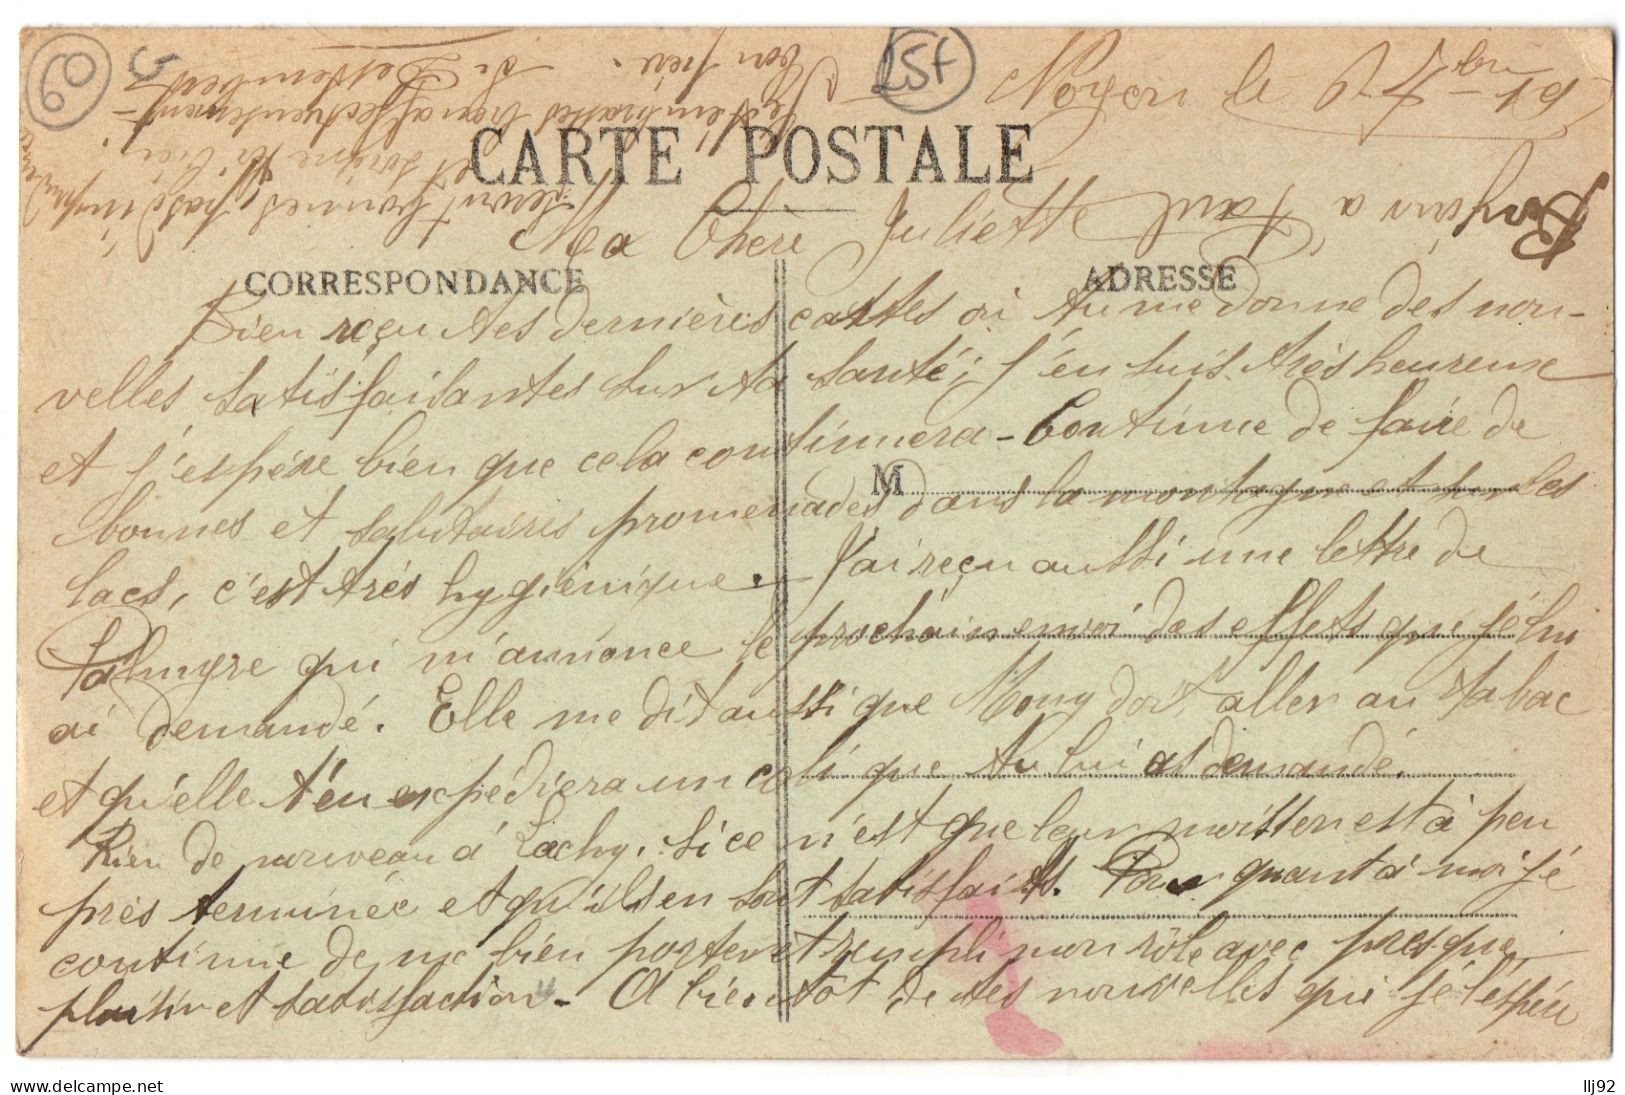 60
5
25f
Noyon le
CARTE POSTALE
Ma Chère Juliette
CORRESPONDANCE
ADRESSE
Bien reçu tes dernières cartes où tu me donne des nou-
velles satisfaisantes sur ta santé; j'en suis très heureuse
et j'espère bien que cela continuera - Continue de faire de
M
bonnes et salutaires promenades dans la montagne et sur les
lacs, c'est très hygiénique. - J'ai reçu aussi une lettre de
Palmyre qui m'annonce le prochain envoi des effets que je lui
ai demandé. Elle me dit aussi que Mony doit aller au tabac
et qu'elle t'en expédiera un coli que tu lui as demandé.
Rien de nouveau à Lachy, si ce n'est que leur moisson est à peu
près terminée et qu'ils en sont satisfaits. Pour quant à moi je
continue de me bien porter et rempli mon rôle avec presque
plaisir et satisfaction - A bientôt de tes nouvelles qui je l'espère
seront bonnes, pas d'imprudence
et soigne toi bien.
Je t'embrasses bien affectueusement
Ton frère.
D. Desvembres
Bonjour à Paul
llj92